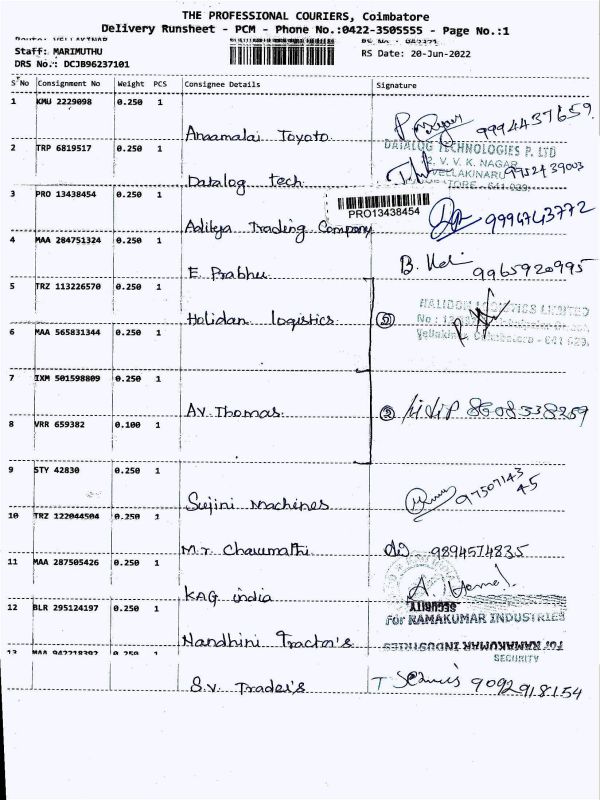 THE PROFESSIONAL COURIERS, Coimbatore
Delivery Runsheet - PCM - Phone No.:0422-3505555 - Page No.:1
Staff: MARIMUTHU
RS Date: 20-Jun-2022
DRS No.: DCJB96237101
S No Consignment No Weight PCS Consignee Details Signature
1 KMU 2229098 0.250 1
Anaamalai Toyoto 9994437659
2 TRP 6819517 0.250 1
DATALOG TECHNOLOGIES P. LTD
V. V. K. NAGAR
VELLAKINARU
Datalog tech 9952439003
3 PRO 13438454 0.250 1
PRO13438454
Aditya Trading Company 9994743772
4 MAA 284751324 0.250 1
E. Prabhu 9965920995
5 TRZ 113226570 0.250 1
HALIDON LOGISTICS LIMITED
Halidan logistics. ⑤
6 MAA 565831344 0.250 1
7 IXM 501598809 0.250 1
AV. Thomas. ② 8608338259
8 VRR 659382 0.100 1
9 STY 42830 0.250 1
Sujini Machines 9750714345
10 TRZ 122044504 0.250 1
M.r. Charumathi 9894574835
11 MAA 287505426 0.250 1
KAG india
12 BLR 295124197 0.250 1
SECURITY
For RAMAKUMAR INDUSTRIES
Nandhini Tractor's
For RAMAKUMAR INDUSTRIES
SECURITY
13 MAA 942218392 0.250 1
S.V. Trader's 9092918154